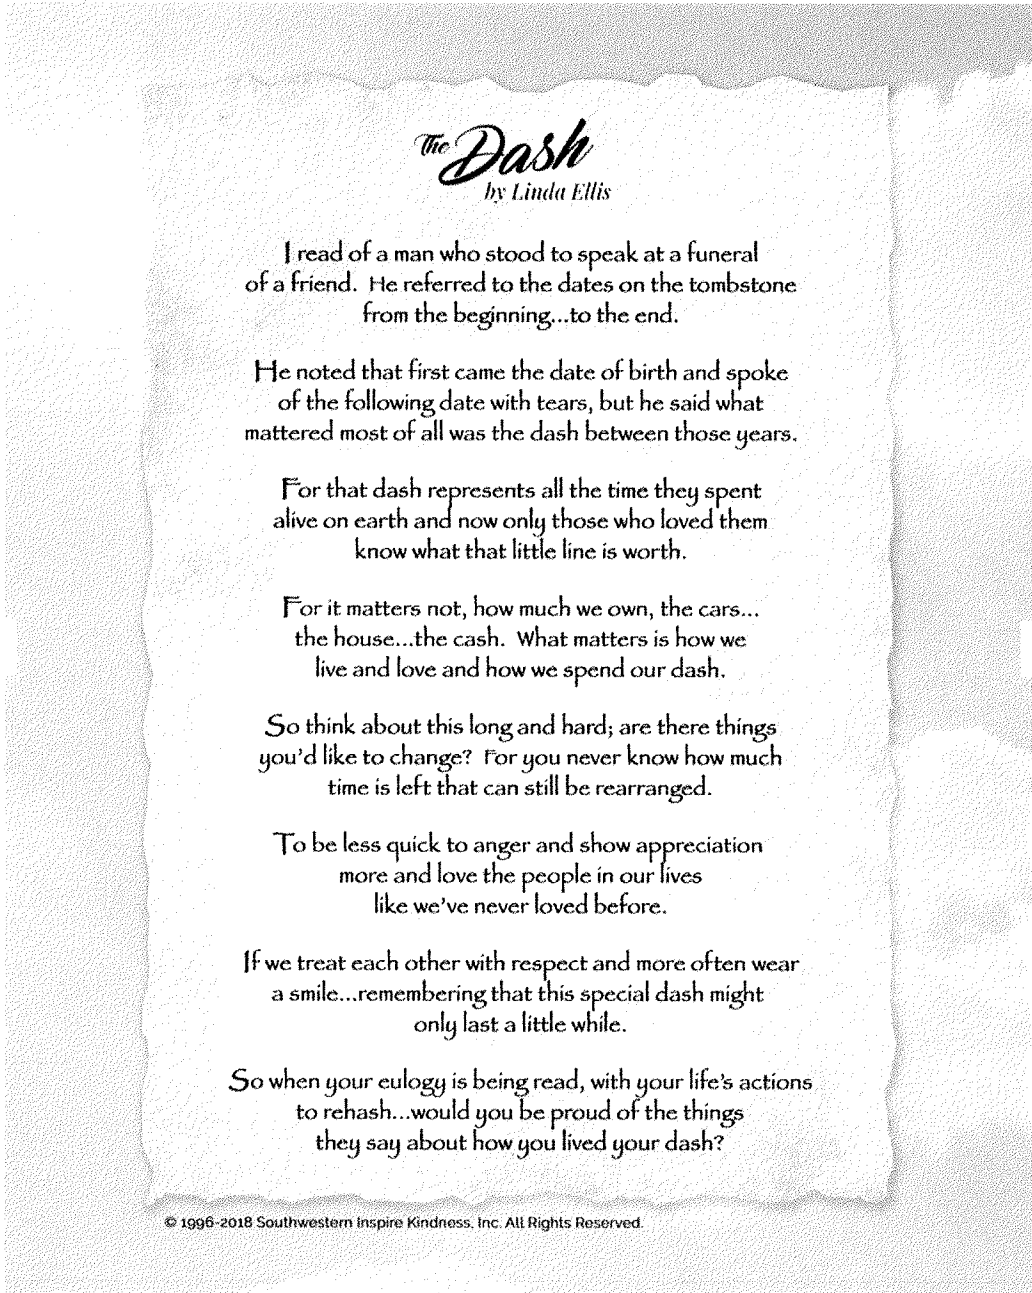 The Dash
by Linda Ellis
I read of a man who stood to speak at a funeral
of a friend. He referred to the dates on the tombstone
from the beginning...to the end.
He noted that first came the date of birth and spoke
of the following date with tears, but he said what
mattered most of all was the dash between those years.
For that dash represents all the time they spent
alive on earth and now only those who loved them
know what that little line is worth.
For it matters not, how much we own, the cars...
the house...the cash. What matters is how we
live and love and how we spend our dash.
So think about this long and hard; are there things
you'd like to change? For you never know how much
time is left that can still be rearranged.
To be less quick to anger and show appreciation
more and love the people in our lives
like we've never loved before.
If we treat each other with respect and more often wear
a smile...remembering that this special dash might
only last a little while.
So when your eulogy is being read, with your life's actions
to rehash...would you be proud of the things
they say about how you lived your dash?
© 1996-2018 Southwestern Inspire Kindness, Inc. All Rights Reserved.